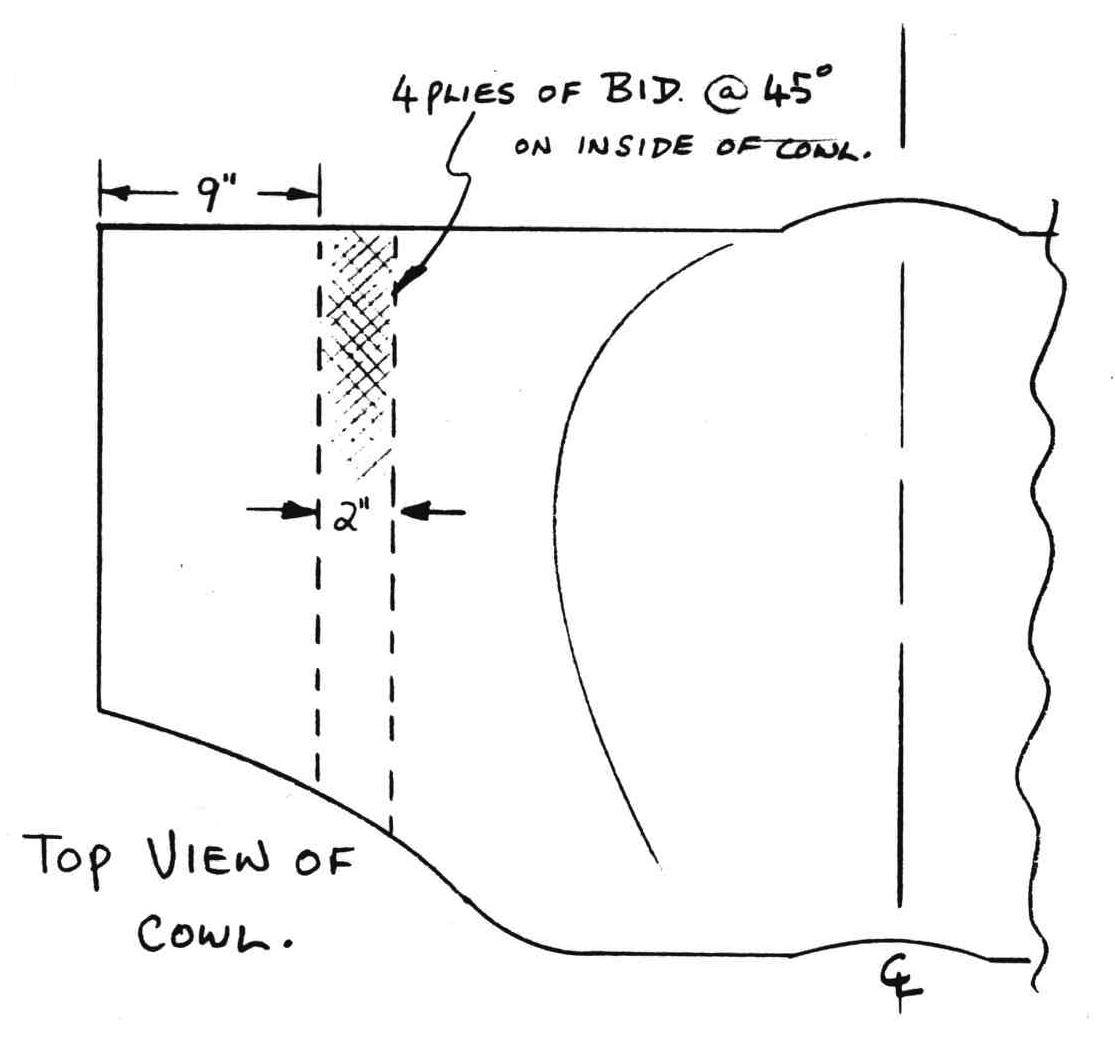 4 PLIES OF BID. @ 45°
ON INSIDE OF COWL.
9"
2"
TOP VIEW OF
COWL.
℄